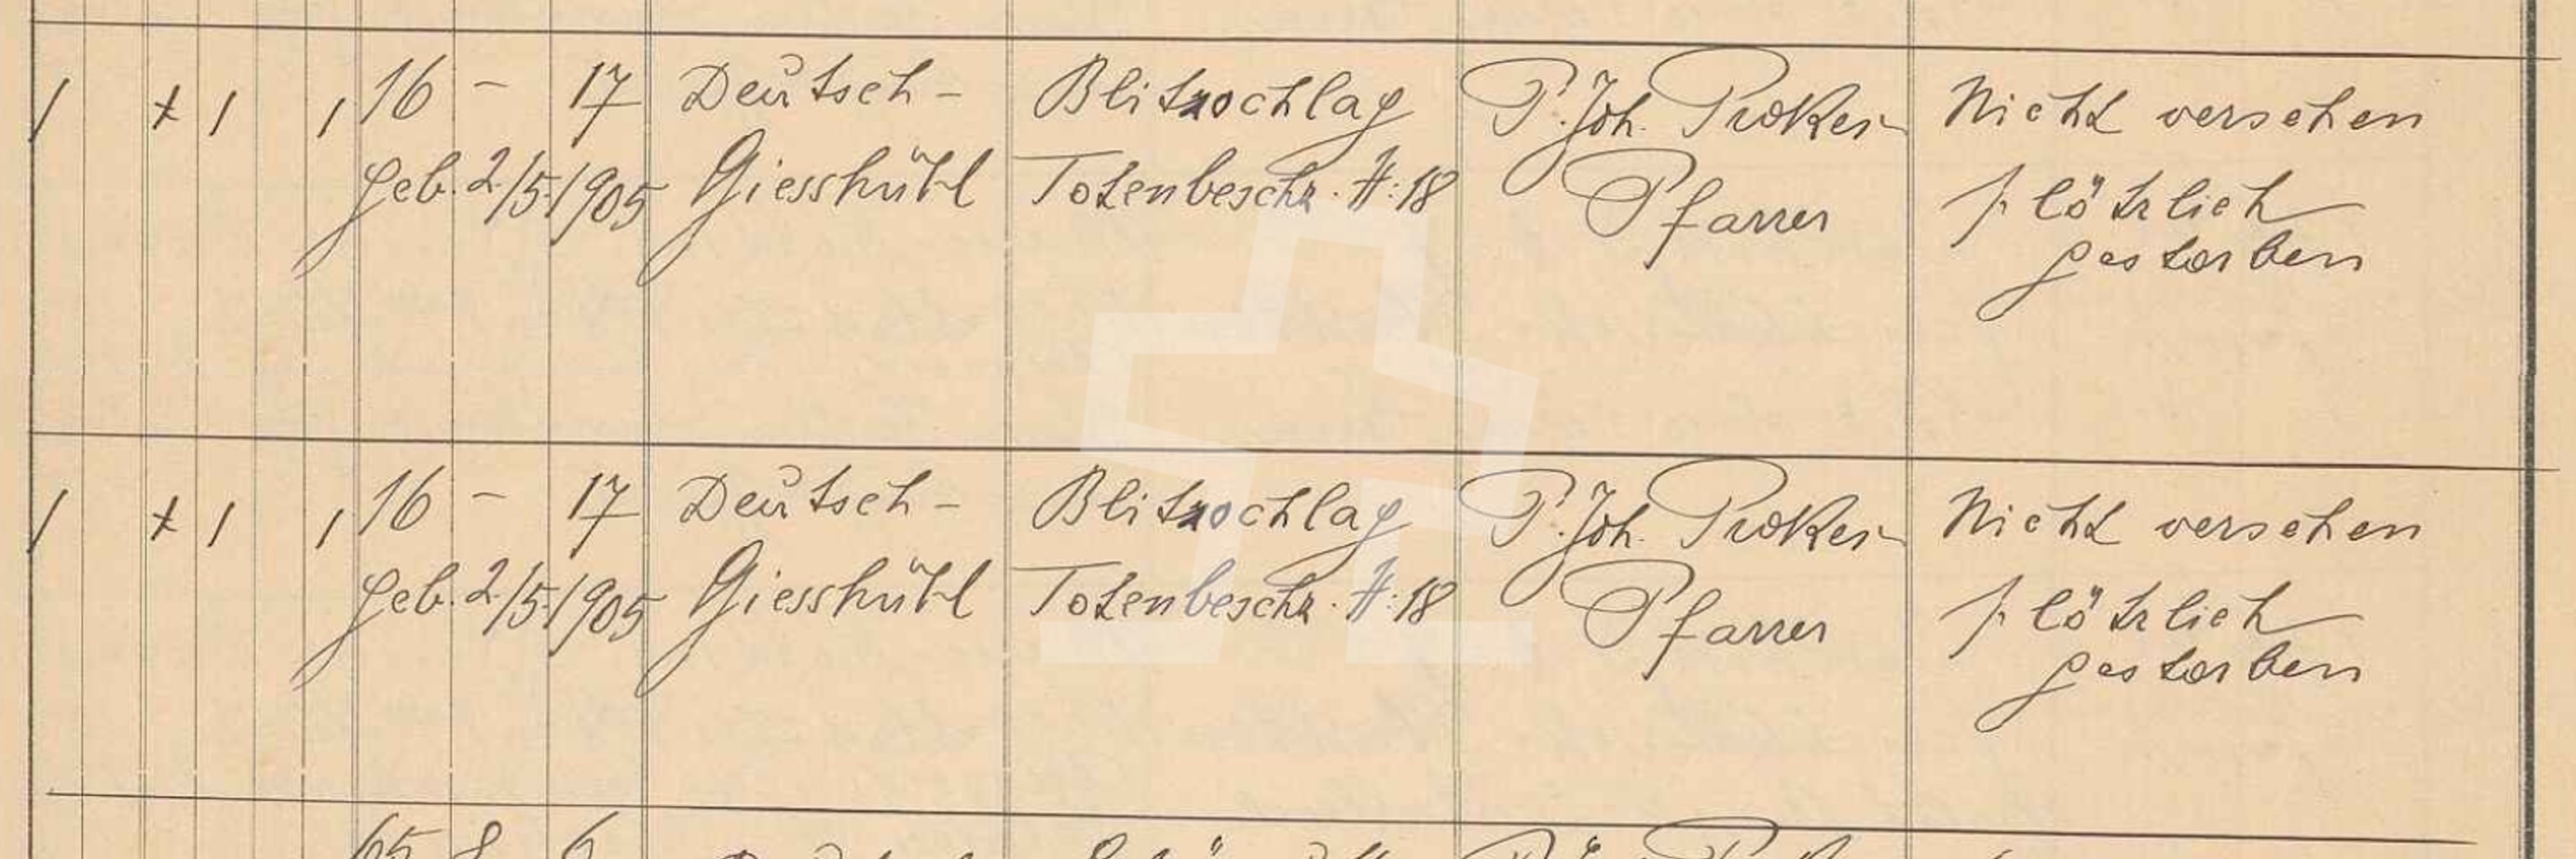 1 + 1 1 16 - 17 Deutsch- Blitzschlag P. Joh. Prokes Nicht versehen
geb. 2/5 1905 Giesshübl Totenbeschr. #:18 Pfarrer plötzlich
gestorben
1 + 1 1 16 - 17 Deutsch- Blitzschlag P. Joh. Prokes Nicht versehen
geb. 2/5 1905 Giesshübl Totenbeschr. #:18 Pfarrer plötzlich
gestorben
65 8 6